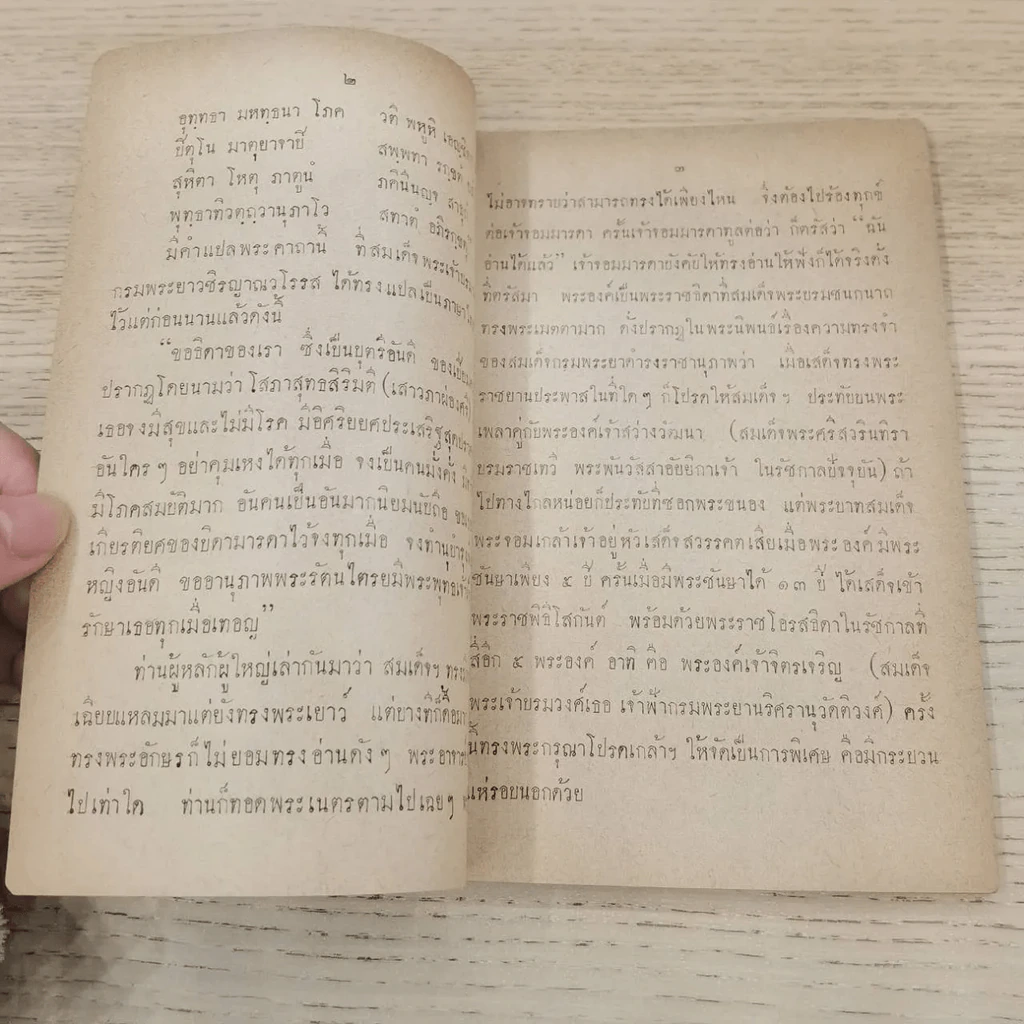 ๒
อุทฺทธา มหทฺธนา โภค วตี พหูหิ
ยีตุโน มาตุยาจายี สพฺพทา
สุหิตา โหตุ ภาตูนํ ภคินีนญฺจ
พุทฺธาทิวตฺถฺวานุภาโว สทาตํ
มีคำแปลพระคาถานี้ ที่สมเด็จพระเจ้า
กรมพระยาวชิรญาณวโรรส ได้ทรงแปลเป็นภาษา
ไว้แต่ก่อนนานแล้วดังนี้
“ขอธิดาของเรา ซึ่งเป็นบุตรีอันดี
ปรากฏโดยนามว่า โสภาสุทธสิริมตี (เสาวภาผ่องศรี)
เธอจงมีสุขและไม่มีโรค มีอิศริยยศประเสริฐสุด
อันใคร ๆ อย่าคุมเหงได้ทุกเมื่อ จงเป็นคนมั่งคั่ง
มีโภคสมบัติมาก อันคนเป็นอันมากนิยมนับถือ
เกียรติยศของบิดามารดาไว้จงทุกเมื่อ
หญิงอันดี ขออานุภาพพระรัตนไตรยมีพระพุทธเจ้า
รักษาเธอทุกเมื่อเทอญ”
ท่านผู้หลักผู้ใหญ่เล่ากันมาว่า สมเด็จฯ
เฉียบแหลมมาแต่ยังทรงพระเยาว์ แต่บางทีก็ดื้อ
ทรงพระอักษรก็ไม่ยอมทรงอ่านดัง ๆ
ไปเท่าใด ท่านก็ทอดพระเนตรตามไปเฉย ๆ
๓
ไม่อาจทราบว่าสามารถทรงได้เพียงไหน จึงต้องไปร้องทุกข์
ต่อเจ้าจอมมารดา ครั้นเจ้าจอมมารดาทูลต่อว่า ก็ตรัสว่า “ฉัน
อ่านได้แล้ว” เจ้าจอมมารดายังคับให้ทรงอ่านให้ฟังก็ได้จริงดัง
ที่ตรัสมา พระองค์เป็นพระราชธิดาที่สมเด็จพระบรมชนกนาถ
ทรงพระเมตตามาก ดังปรากฏในพระนิพนธ์เรื่องความทรงจำ
ของสมเด็จกรมพระยาดำรงราชานุภาพว่า เมื่อเสด็จทรงพระ
ราชยานประพาสในที่ใด ๆ ก็โปรดให้สมเด็จ ฯ ประทับบนพระ
เพลาคู่กับพระองค์เจ้าสว่างวัฒนา (สมเด็จพระศรีสวรินทิรา
บรมราชเทวี พระพันวัสสาอัยยิกาเจ้า ในรัชกาลปัจจุบัน) ถ้า
ไปทางไกลหน่อยก็ประทับที่ซอกพระขนอง แต่พระบาทสมเด็จ
พระจอมเกล้าเจ้าอยู่หัวเสด็จสวรรคตเสียเมื่อพระองค์มีพระ
ชันษาเพียง ๕ ปี ครั้นเมื่อมีพระชันษาได้ ๑๓ ปี ได้เสด็จเข้า
พระราชพิธีโสกันต์ พร้อมด้วยพระราชโอรสธิดาในรัชกาลที่
สี่อีก ๕ พระองค์ อาทิ คือ พระองค์เจ้าจิตรเจริญ (สมเด็จ
พระเจ้าบรมวงศ์เธอ เจ้าฟ้ากรมพระยานริศรานุวัดติวงศ์) ครั้ง
นี้ทรงพระกรุณาโปรดเกล้าฯ ให้จัดเป็นการพิเศษ คือมีกระบวน
แห่รอบนอกด้วย